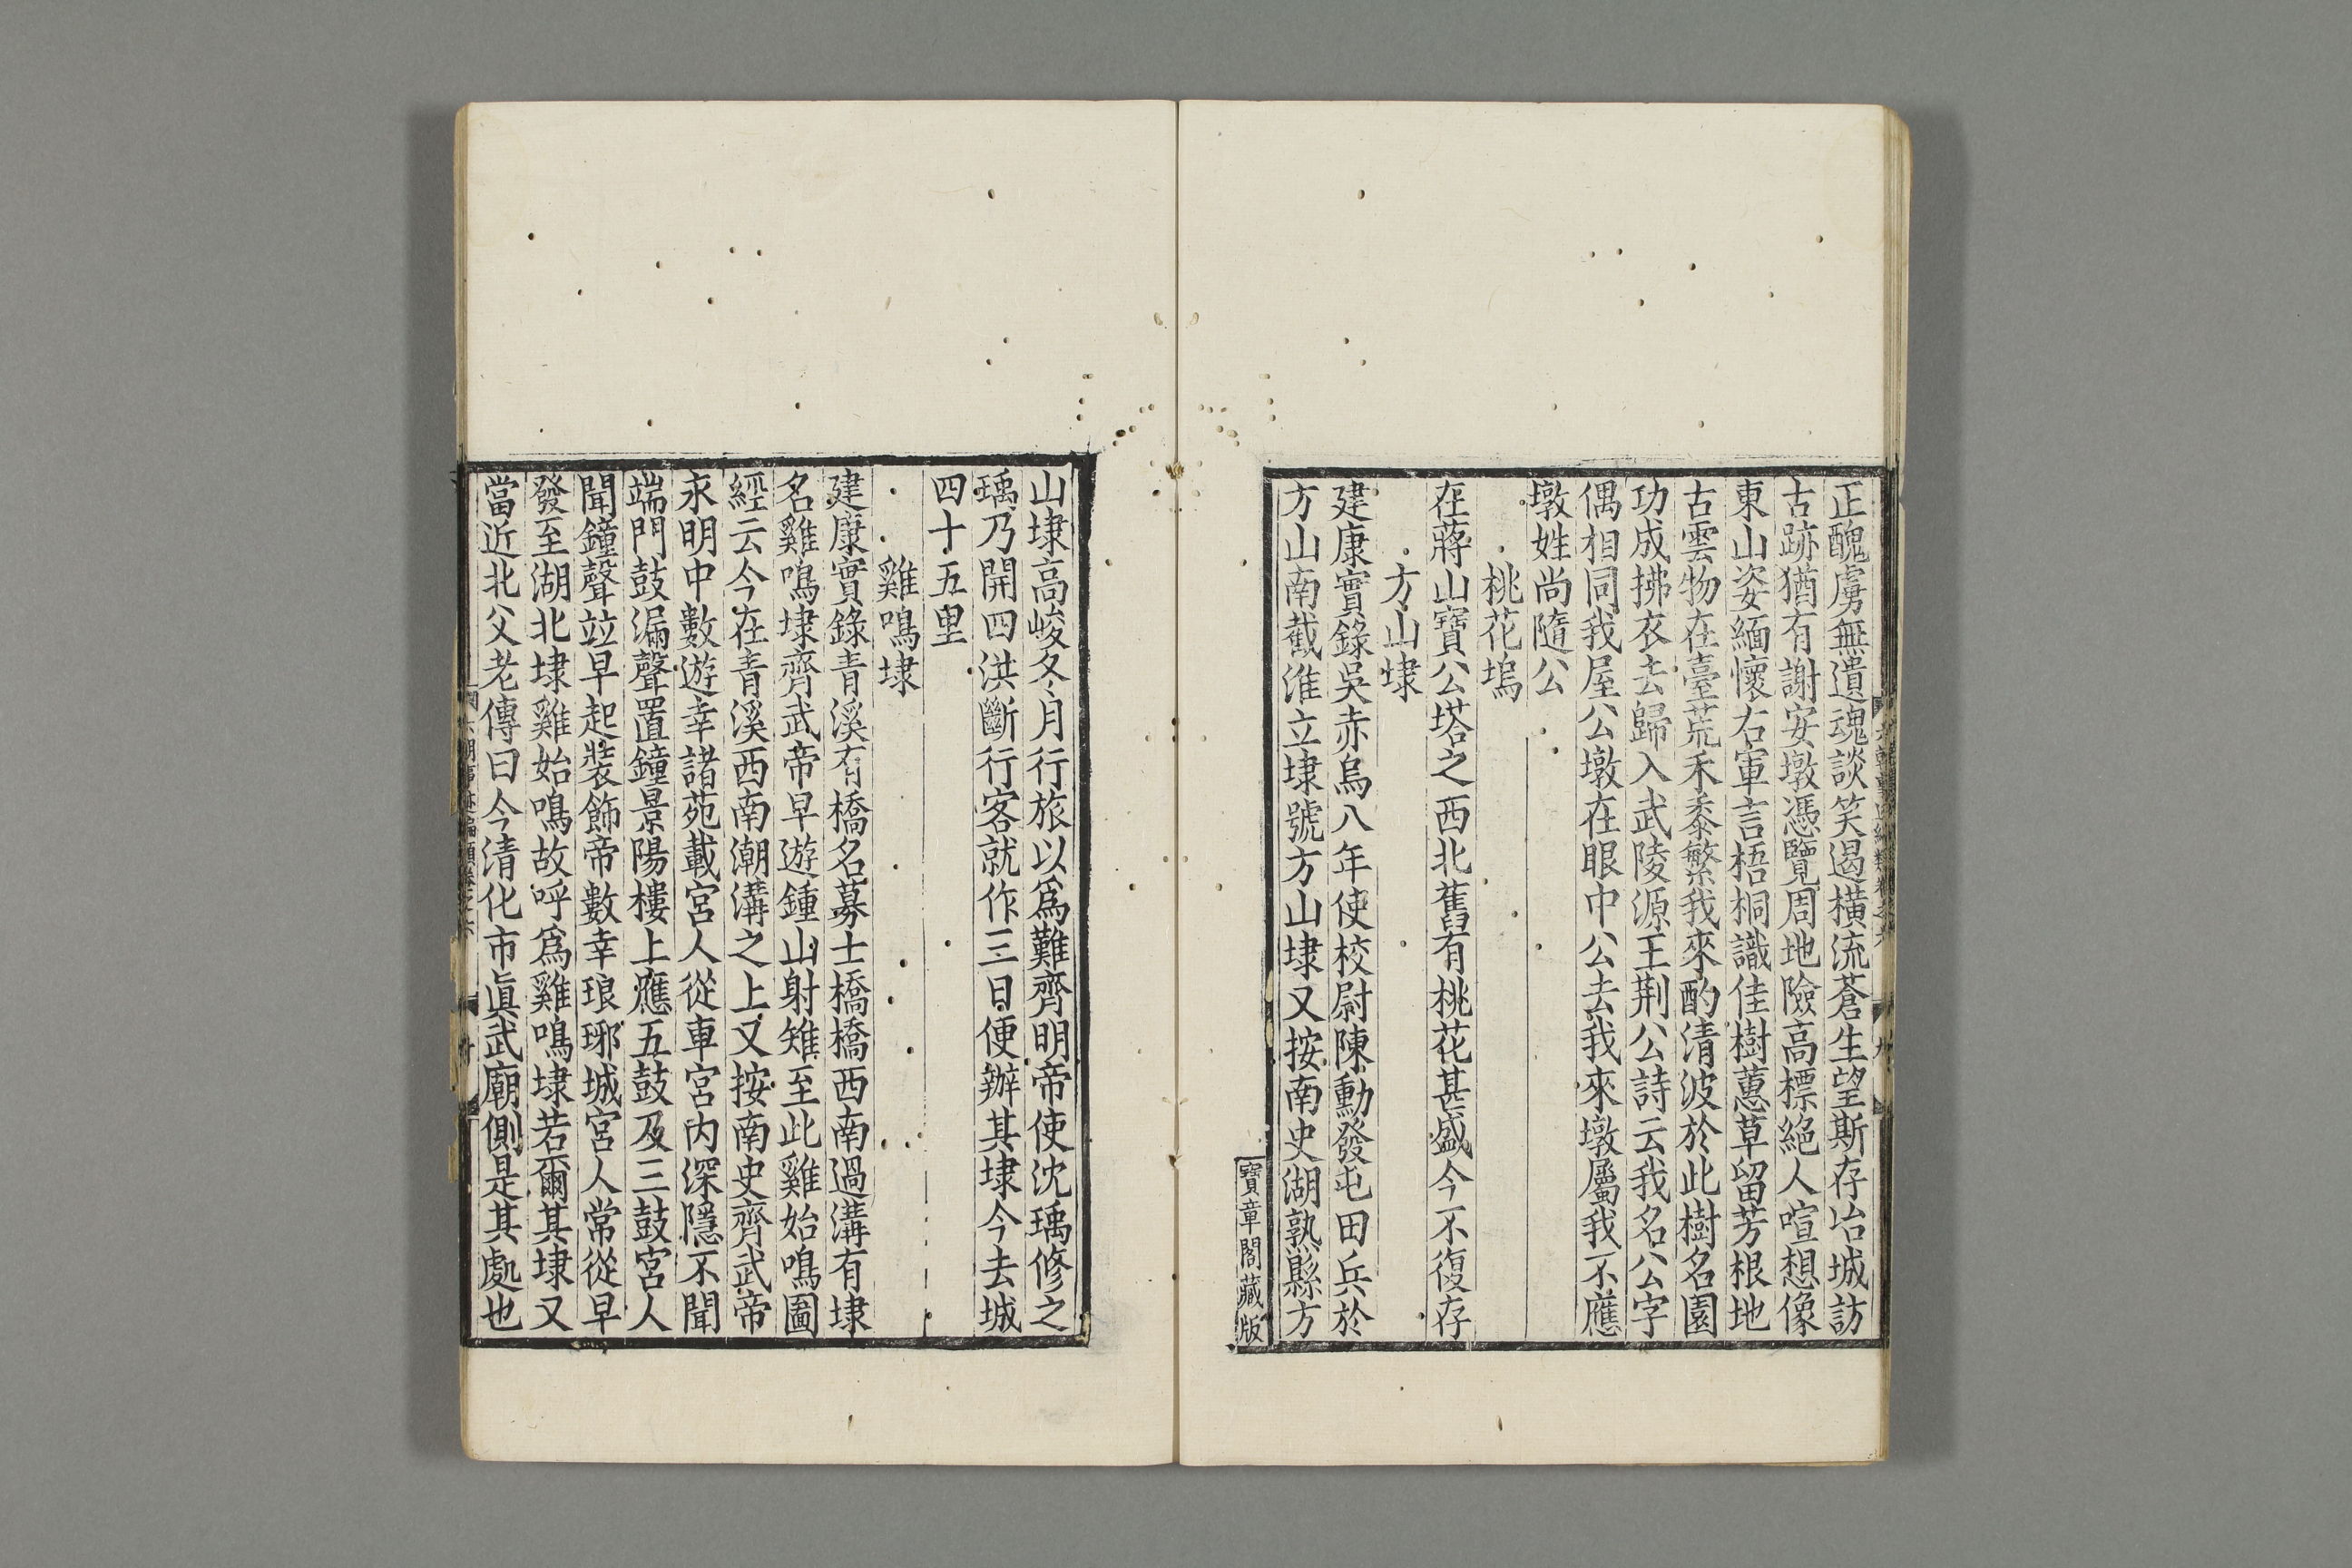 正醜虜無遺魂談笑遏橫流蒼生望斯存冶城訪
古跡猶有謝安墩憑覽周地險高標絕人喧想像
東山姿緬懷右軍言梧桐識佳樹蕙草留芳根地
古雲物在臺荒禾黍繁我來酌清波於此樹名園
功成拂衣去歸入武陵源王荆公詩云我名公字
偶相同我屋公墩在眼中公去我來墩屬我不應
墩姓尚隨公
桃花塢
在蔣山寶公塔之西北舊有桃花甚盛今不復存
方山埭
建康實錄吳赤烏八年使校尉陳勳發屯田兵於
方山南截淮立埭號方山埭又按南史湖熟縣方
寶章閣藏版
山埭高峻冬月行旅以爲難齊明帝使沈瑀修之
瑀乃開四洪斷行客就作三日便辦其埭今去城
四十五里
雞鳴埭
建康實錄青溪有橋名募士橋橋西南過溝有埭
名雞鳴埭齊武帝早遊鍾山射雉至此雞始鳴圖
經云今在青溪西南潮溝之上又按南史齊武帝
永明中數遊幸諸苑載宮人從車宮內深隱不聞
端門鼓漏聲置鐘景陽樓上應五鼓及三鼓宮人
聞鐘聲竝早起裝飾帝數幸琅琊城宮人常從早
發至湖北埭雞始鳴故呼爲雞鳴埭若爾其埭又
當近北父老傳曰今清化市眞武廟側是其處也
六朝事迹編類卷之六